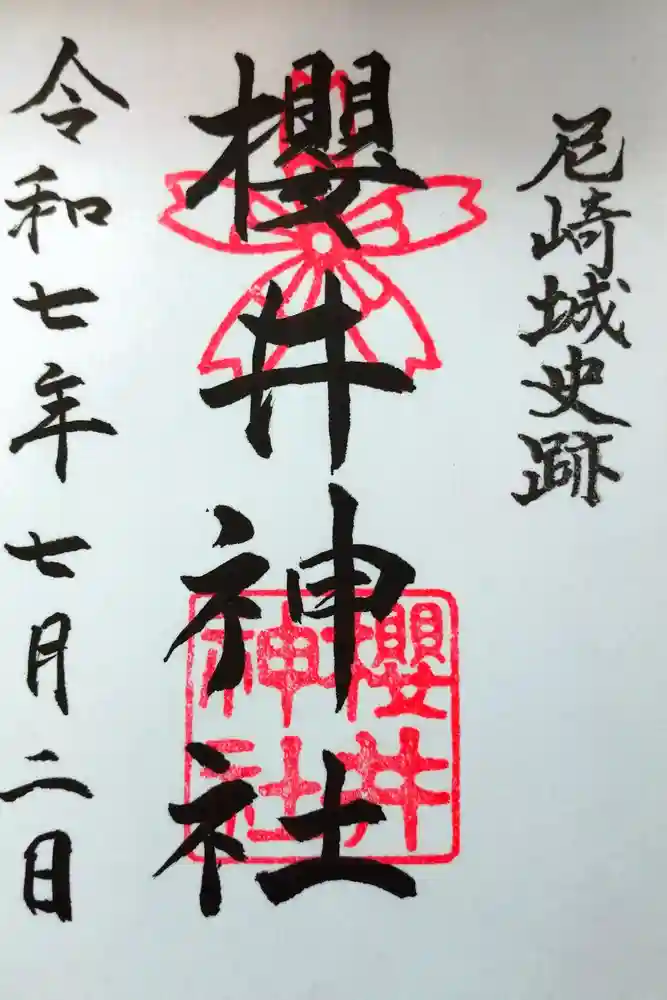 尼崎城史跡
櫻井神社
櫻井
神社
令和七年七月二日